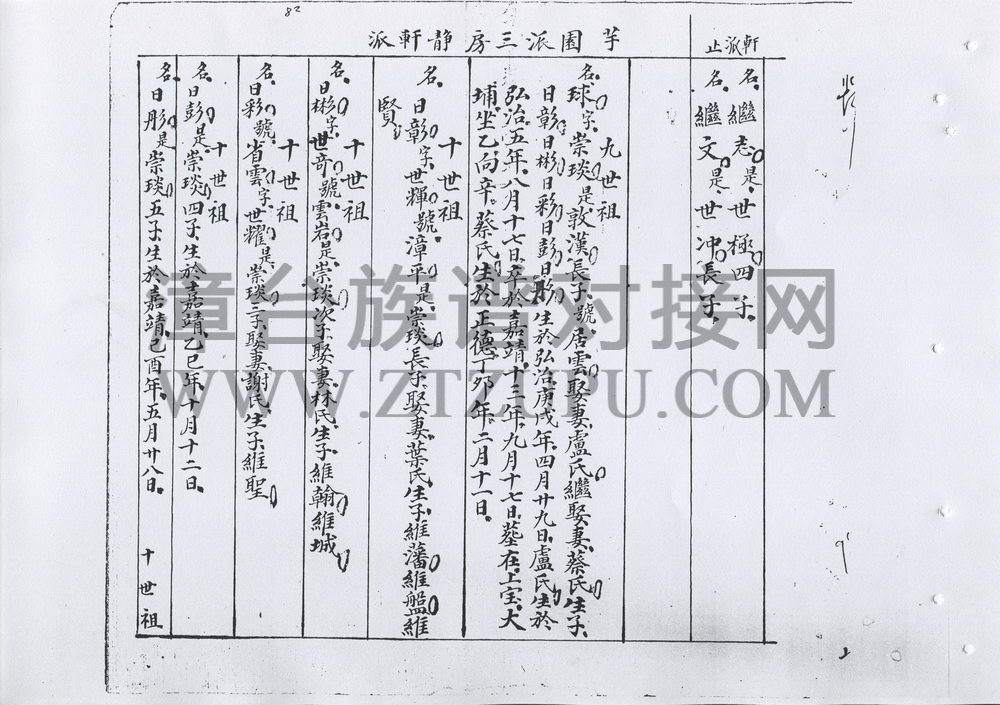 82
軒派止
名繼志是世極四子
名繼文是世冲長子
芋園派三房靜軒派
九世祖
名球字崇琰是敦漢長子號居雲娶妻盧氏繼娶妻蔡氏生子
日彰日彬日彩日彭日彤生於弘治庚戌年四月廿九日盧氏生於
弘治五年八月十七日卒於嘉靖十三年九月十七日墓在上宝大
埔坐乙向辛蔡氏生於正德丁卯年二月十一日
十世祖
名日彰字世輝號漳平是崇琰長子娶妻葉氏生子維藩維盤維
賢
十世祖
名日彬字世奇號雲岩是崇琰次子娶妻林氏生子維翰維城
十世祖
名日彩號省雲字世耀是崇琰三子娶妻謝氏生子維聖
十世祖
名日彭是崇琰四子生於嘉靖乙巳年十月十二日
十世祖
名日彤是崇琰五子生於嘉靖己酉年五月廿八日
章台族谱对接网
WWW.ZTZUPU.COM